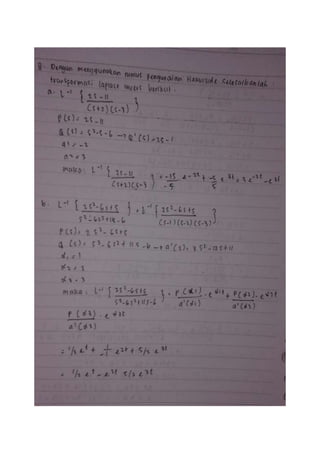 8. Dengan menggunakan rumus penguraian Heaviside selesaikanlah
transformasi laplace invers berikut.
a. L⁻¹ { 2s-11 / (s+2)(s-3) }
P(s) = 2s-11
Q(s) = s²-s-6 → Q'(s) = 2s-1
α1 = -2
α2 = 3
maka : L⁻¹ { 2s-11 / (s+2)(s-3) } = -15/-5 e^-2t + -5/5 e^3t = 3e^-2t - e^3t
b. L⁻¹ { 2s²-6s+5 / s³-6s²+11s-6 } = L⁻¹ { 2s²-6s+5 / (s-1)(s-2)(s-3) }
P(s) = 2s²-6s+5
Q(s) = s³-6s²+11s-6 → Q'(s) = 3s²-12s+11
α1 = 1
α2 = 2
α3 = 3
maka : L⁻¹ { 2s²-6s+5 / s³-6s²+11s-6 } = P(α1) / Q'(α1) . e^α1t + P(α2) / Q'(α2) . e^α2t
P(α3) / Q'(α3) . e^α3t
= 1/2 e^t + 1/-1 e^2t + 5/2 e^3t
= 1/2 e^t - e^2t 5/2 e^3t